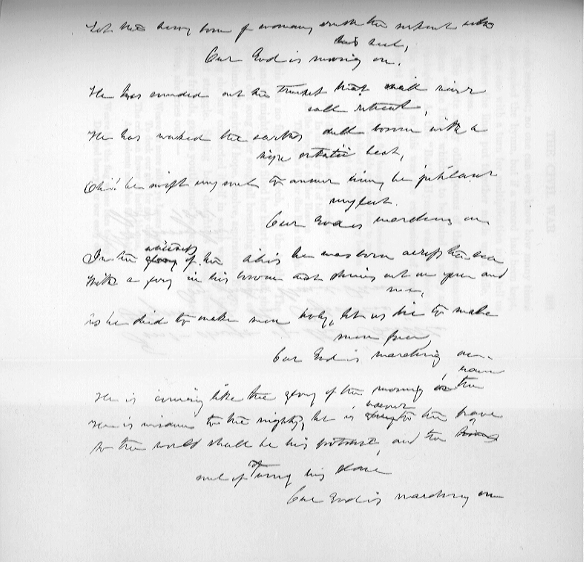 Let the hero, born of woman, crush the serpent with
his heel,
Our God is marching on.
He has sounded out the trumpet that shall never
call retreat,
He has waked the earth's dull bosom with a
high ecstatic beat,
Oh! be swift my soul to answer him, be jubilant
my feet.
Our God is marching on.
whiteness
In the glory of the lilies he was born across the sea
With a glory in his bosom that shines out on you and
me,
As he died to make men holy, let us die to make
men free,
Our God is marching on.
He is coming like the glory of the morning on the
wave
He is wisdom to the mighty, he is honour to the brave
So the world shall be his footstool, and the
soul of Time his slave
Our God is marching on